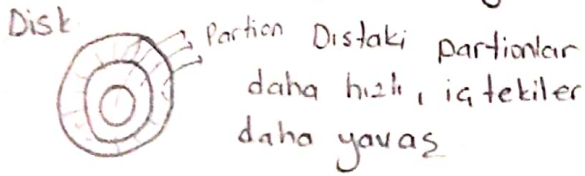 Disk
Partion Dıştaki partionlar
daha hızlı, içtekiler
daha yavaş